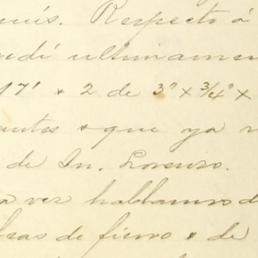 Respecto á
ultimamen
17' & 2 de 3" x ¾" x
que ya
de Sn. Lorenzo.
a ver hablamos d
de fierro & de